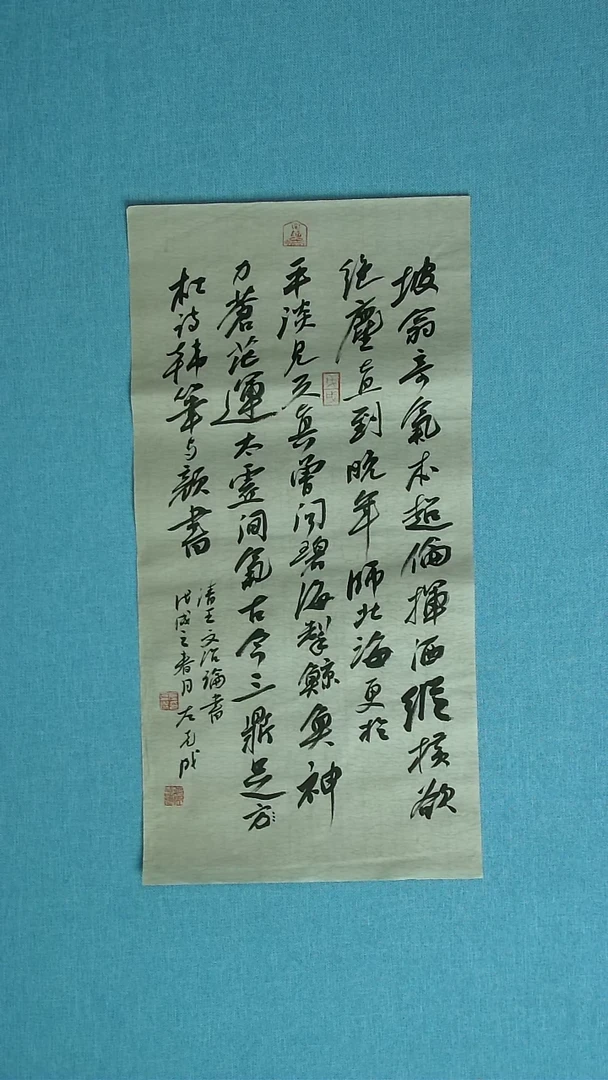 坡翁奇氣本超倫揮洒縱横欲
絶塵直到晚年師北海更於
平淡見天真曾聞碧海掣鯨魚神
力蒼茫運太靈間氣古今三鼎足方
杜詩韩筆与顔書
清王文治論書
戊戌之春月左毛成